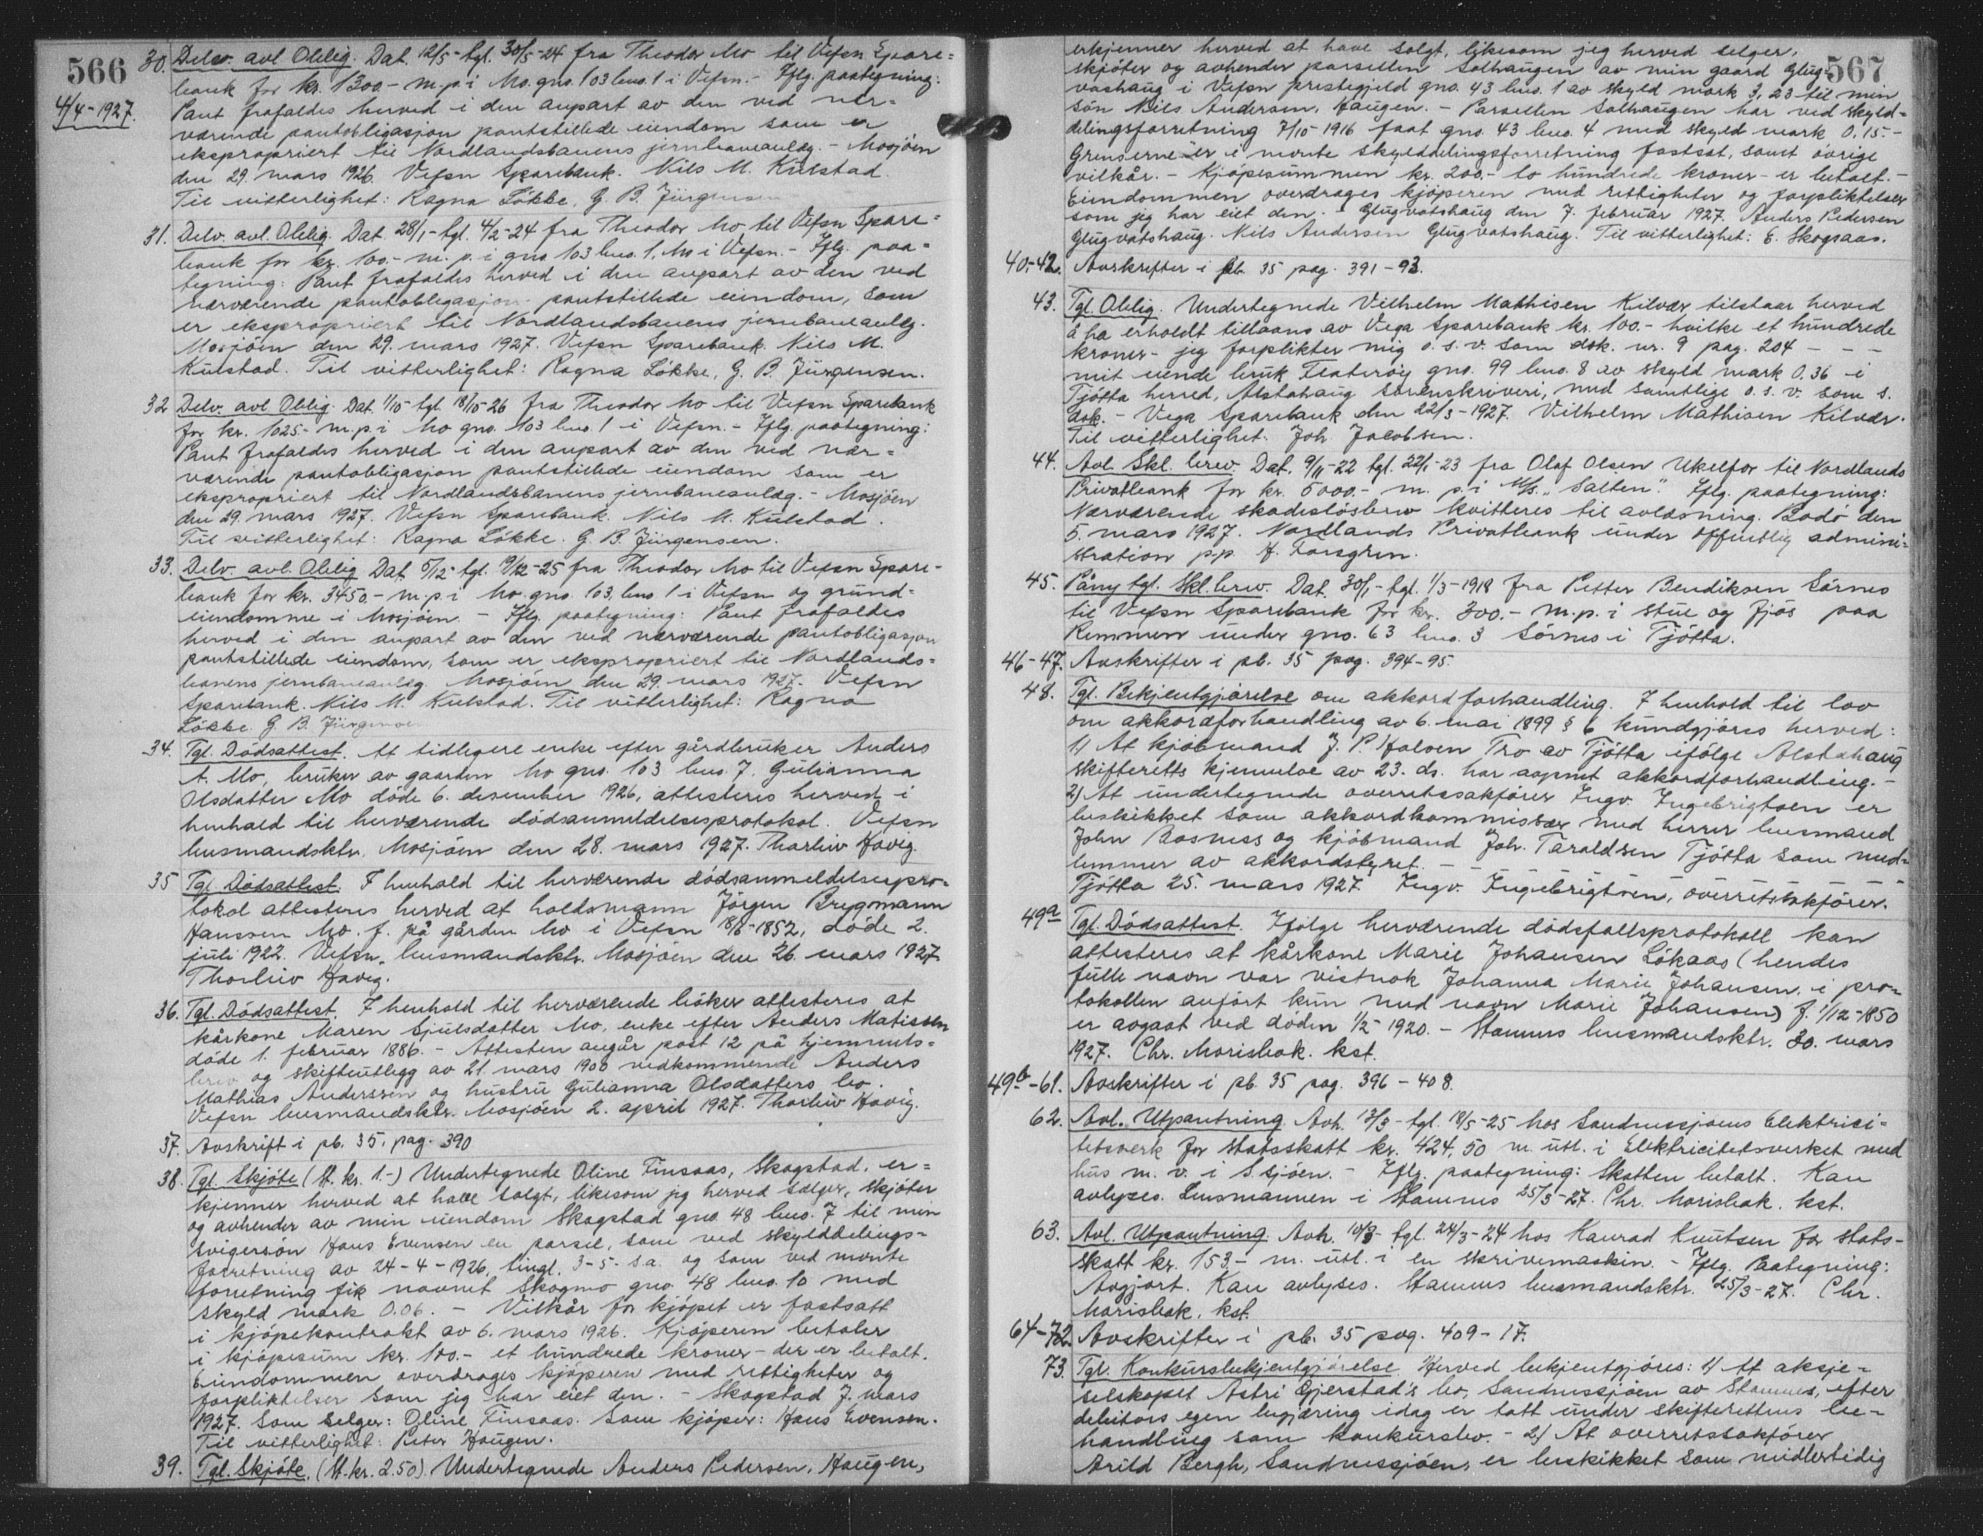 566
4/4-1927.
30. Delv. avl Oblig. Dat. 12/5- tgl. 30/5-24 fra Theodor Mo til Vefsn Spare=
bank for kr. 1300.- m. p. i Mo. gno. 103 bno. 1 i Vefsn.- Iflg. paategning:
Pant frafaldes herved i den anpart av den ved nær=
værende pantobligasjon pantstillede eiendom som er
ekspropriert til Nordlandsbanens jernbaneanlæg. - Mosjöen
den 29. mars 1926. Vefsn Sparebank. Nils M. Kulstad.
Til vitterlighet: Ragna Lökke. G. B. Jürgensen
31. Delv. avl. Oblig. Dat. 28/1- tgl. 4/2-24 fra Theodor Mo til Vefsn Spare=
bank for kr. 100.- m. p. i gno 103 bno. 1, Mo i Vefsn. - Iflg. paa=
tegning: Pant frafaldes herved i den anpart av den ved
nærværende pantobligasjon pantstillede eiendom, som
er ekspropriert til Nordlandsbanens jernbaneanlæg.
Mosjöen den 29. mars 1927. Vefsn Sparebank. Nils M.
Kulstad. Til vitterlighet: Ragna Lökke, G. B. Jürgensen.
32 Delv. avl Oblig. Dat. 1/10- tgl. 18/10-26 fra Theodor Mo til Vefsn Sparebank
for kr. 1025.- m. p. i Mo gno. 103 bno. 1 i Vefsn. - Iflg. paategning:
Pant frafaldes herved i den anpart av den ved nær=
værende pantobligasjon pantstillede eiendom som er
ekspropriert til Nordlandsbanens jernbaneanlæg. - Mosjöen
den 29. mars 1927. Vefsn Sparebank. Nils M. Kulstad.
Til vitterlighet: Ragna Lökke. G. B. Jürgensen.
33. Delv. avl. Oblig Dat. 5/12- tgl. 9/12-25 fra Theodor Mo til Vefsn Spare-
bank for kr. 3450.- m. p. i Mo. gno. 103, bno 1 i Vefsn og grund=
eiendomme i Mosjöen. - Iflg. paategning: Pant frafaldes
herved i den anpart av den ved nærværende pantobligasjon
pantstillede eiendom, som er ekspropriert til Nordlands=
banens jernbaneanlæg Mosjöen den 29. mars 1927. Vefsn
Sparebank. Nils M. Kulstad. Til vitterlighet: Ragna
Lökke G. B. Jürgensen
34. Tgl. Dödsattest. At tidligere enke efter gårdbruker Anders
A. Mo, bruker av gaarden Mo gno. 103 bno. 7. Gulianna
Olsdatter Mo döde 6. desember 1926, attesteres herved i
henhold til herværende dödsanmeldelsesprotokol. Vefsn
lensmandsktr. Mosjöen den 28. mars 1927. Thorleiv Havig.
35 Tgl. Dödsattest. I henhold til herværende dödsanmeldelsespro-
tokol attesteres herved at holdsmann Jörgen Brygmann
Hanssen Mo. f. på gården Mo i Vefsn 18/8-1852, döde 2.
juli 1922. Vefsn, lensmandsktr. Mosjöen den 26. mars 1927
Thorleiv Havig.
36. Tgl. Dödsattest. I henhold til herværende böker attesteres at
kårkone Maren Sjulsdatter Mo, enke efter Anders Matissen
döde 1. februar 1886. - Attesten angår post 12 på hjemmels=
brev og skifteutlegg av 21. mars 1900 vedkommende Anders
Mathias Anderssen og hustru Gulianna Olsdatters bo.
Vefsn lensmandsktr. Mosjöen 2. april 1927. Thorleiv Havig.
37. Avskrift i pb. 35, pag. 390
38. Tgl. Skjöte (St. kr. 1.-) Undertegnede Oline Finsaas, Skogstad, er=
kjenner herved at have solgt, likesom jeg herved sælger, skjöter
og avhender av min eiendom Skogstad gno. 48 bno. 7 til min
svigersön Hans Evensen en parsel, som ved skylddelings=
forretning av 24-4-1926, tingl. 3-5- s.a. og som ved nevnte
forretning fik navnet Skogmo gno. 48 bno. 10 med
skyld mark 0.06. - Vilkår for kjöpet er fastsatt
i kjöpekontrakt av 6. mars 1926. Kjöperen betaler
i kjöpesum kr. 100.- et hundrede kroner- der er betalt.
Eiendommen overdrages kjöperen med rettigheter og
forpliktelser som jeg har eiet den. - Skogstad 7. mars
1927. Som selger: Oline Finsaas. Som kjöper: Hans Evensen.
Til vitterlighet: Peter Haugen.
39. Tgl. Skjöte. (St. kr. 2.50). Undertegnede Anders Pedersen, Haugen,
567
erkjenner herved at have solgt, likesom jeg herved selger,
skjöter og avhender parsellen Solhaugen av min gaard Glug=
vashaug i Vefsn prestegjeld gno. 43 bno. 1 av skyld mark 3,23 til min
sön Nils Andersen, Haugen. - Parsellen Solhaugen har ved skyld=
delingsforretning 7/10-1916 faat gno. 43 bno. 4 med skyld mark 0.15.-
Grenserne er i nevnte skylddelingsforretning fastsat, samt övrige
vilkår. - Kjöpesummen kr. 200.- to hundrede kroner - er betalt. -
Eiendommen overdrages kjöperen med rettigheter og forpliktelser
som jeg har eiet den. - Glugvatshaug den 7. februar 1927. Anders Pedersen
Glugvatshaug. Nils Andersen Glugvatshaug. Til vitterlighet: E. Skogsaas.
40.-42. Avskrifter i pb. 35 pag. 391-93.
43. Tgl. Oblig. Undertegnede Vilhelm Mathisen Kilvær tilstaar herved
å ha erholdt tillaans av Vega Sparebank kr. 100.- hvilke et hundrede
kroner- jeg forplikter mig o. s. v. som dok. nr. 9 pag. 204 - - -
mit eiende bruk gno. 99 bno. 8 av skyld mark 0,36 i
Tjötta herred, Alstahaug sorenskriveri, med samtlige o. s. v. som s.
dok. - Vega Sparebank den 22/3-1927. Vilhelm Mathisen Kilvær.
Til vitterlighet. Joh. Jacobsen.
44. Avl. Skl. brev. Dat. 9/11-22 tgl. 22/1-23 fra Olaf Olsen Ukelfor til Nordlands
Privatbank for kr. 5000.- m. p. i M/S. "Salten". Iflg. paategning:
Nærværende skadeslösbrev kvitteres til avlæsning. Bodö den
5. mars 1927. Nordlands Privatbank under offentlig admini=
stration p.p. H. Forsgren.
45. Påny tgl. Skl. brev. Dat. 30/1- tgl. 1/3-1918 fra Petter Bendiksen Sörnes
til Vefsn Sparebank for kr. 300.- m. p. i stue og fjös paa
Remmen under gno. 63 bno. 3 Sörnes i Tjötta.
46-47. Avskrifter i pb. 35 pag. 394-95.
48. Tgl. Bekjentgjörelse om akkordforhandling. I henhold til lov
om akkordforhandling av 6. mai 1899 § 6 kundgjöres herved:
1) At kjöbmand J. P. Halsen Tro av Tjötta ifölge Alstahaug
skifteretts kjennelse av 23. ds. har aapnet akkordforhandling.-
2) At undertegnede overretssakförer Ingv. Ingebrigtsen er
beskikket som akkordkommissær med herrer lensmand
John Bosness og kjöbmand Joh. Taraldsen Tjötta som med=
lemmer av akkordstyret. -
Tjötta 25. mars 1927. Ingv. Ingebrigtsen, overretssakförer.
49a Tgl. Dödsattest. Ifölge herværende dödsfallsprotokoll kan
attesteres at kårkone Marie Johansen Lökaas (hendes
fulle navn var vistnok Johanna Marie Johansen, i pro=
tokollen anfört kun med navn Marie Johansen) f. 1/12-1850
er avgaat ved döden 1/2-1920. - Stamnes lensmandsktr. 30. mars
1927. Chr. Morisbak. kst.
49b-61. Avskrifter i pb. 35 pag. 396-408.
62. Avl. Utpantning. Avh. 17/3- tgl. 18/5-25 hos Sandnessjöens Elektrici=
tetsverk for statsskatt kr. 424,50 m. utl. i Elektricitetsverket med
hus m. v. i S.sjöen. - Iflg. paategning: Skatten betalt. Kan
avlyses. Lensmannen i Stamnes 25/3-27. Chr. Morisbak. kst.
63. Avl. Utpantning. Avh. 10/3- tgl. 24/3-24 hos Konrad Knutsen for stats-
skatt kr. 153.- m. utl. i en skrivemaskin. - Iflg. Paategning:
Avgjort. Kan avlyses. Stamnes lensmandsktr. 25/3-27. Chr.
Morisbak, kst.
64-72. Avskrifter i pb. 35 pag. 409-17.
73. Tgl. Konkursbekjentgjörelse. Herved bekjentgjöres: 1) At aksje=
selskapet Astri Gjerstad's bo, Sandnessjöen av Stamnes, efter
debitors egen begjæring idag er tatt under skifterettens be=
handling som konkursbo. - 2) At overretssakförer
Arild Bergh, Sandnessjöen, er beskikket som midlertidig